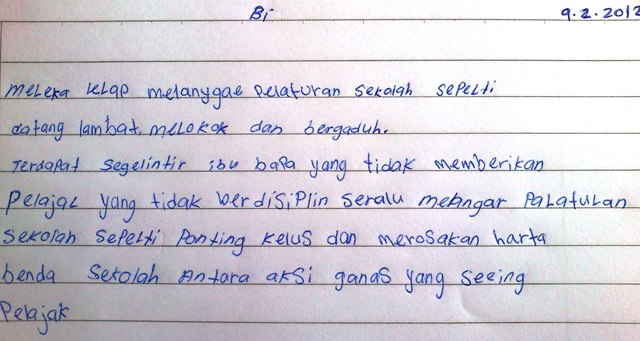 Bi 9.2.2012
meleka kelap melanyyae pelaturan sekolah sepelti
datang lambat, melokok dan bergaduh.
Terdapat segelintir ibu bapa yang tidak memberikan
Pelajal yang tidak berdisiplin seralu melangar Palatulan
sekolah sepelti Ponting kelus dan merosakan harta
benda sekolah Antara aksi ganas yang seeing
Pelajak